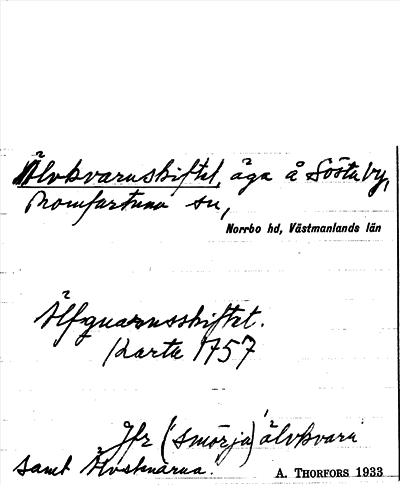 Älvkvarnskiftet, äga å Sösta by,
Romfartuna sn,
Norrbo hd, Västmanlands län
Älfquarnsskiftet.
Karta 1757
Jfr (smörja) älvkvarn
samt
A. THORFORS 1933